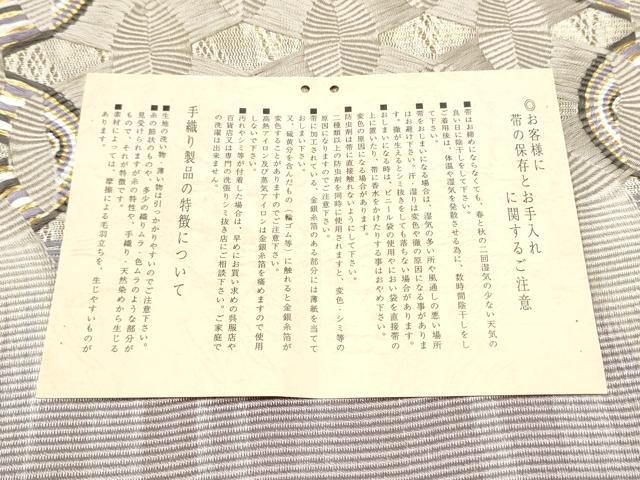 ◎お客様に
帯の保存とお手入れ
に関するご注意
■帯はお締めにならなくても、春と秋の二回湿気の少ない天気の
良い日に陰干しをして下さい。
■ご着用後は、体温や湿気を発散させる為に、数時間陰干しをし
て下さい。
■帯をおしまいになる場合は、湿気の多い所や風通しの悪い場所
はお避け下さい。汗、湿りは変色や黴の原因になる事がありま
す。黴が生えるとシミ抜きをしても落ちない場合があります。
■おしまいになる時は、ビニール袋の使用やにおい袋を直接帯の
上に置いたり、帯に香水をかけたりする事はおやめ下さい。
変色の原因になる場合があります。
■防虫剤は帯に直接触れないようにして下さい。
二種類以上の防虫剤を同時に使用されますと、変色・シミ等の
原因になりますのでご注意下さい。
■帯に加工されている、金銀糸箔のある部分には薄紙を当てて
おしまい下さい。
又、硫黄分を含んだもの「輪ゴム等」に触れると金銀糸箔が
変色することがありますのでご注意下さい。
■高熱アイロン及び蒸気アイロンは金銀糸箔を痛めますので使用
しないで下さい。
■汚れやシミ等が付着した場合は、早めにお買い求めの呉服店や
百貨店又は専門の洗張りシミ抜き店にご相談下さい。ご家庭で
の洗濯は出来ません。
手織り製品の特徴について
■生地の洗い物、薄い物は引っかかりやすいのでご注意下さい。
■糸の節状のものや、多少の織りムラ、色ムラのような部分が
見受けられますが糸の特性や、手織り、天然染めから生じる
もので、それが特徴です。
■素材によっては、摩擦による毛羽立ちを、生じやすいものが
あります。